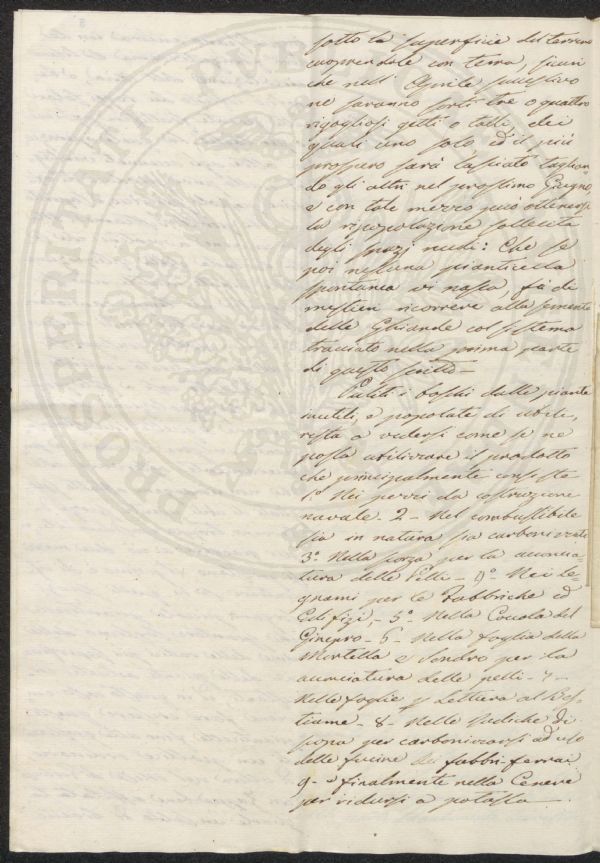 PROSPERITATI PVBLICAE
sotto la superficie del terreno
cuoprendole con terra, sicu
che nell' Aprile successivo
ne saranno sorti tre o quattro
rigogliosi getti o talli dei
quali uno solo ed il più
prospero sarà lasciato taglian-
do gli altri nel prossimo Giugno,
e con tale mezzo può ottenersi
la ripopolazione sollecita
degli spazi nudi: Che se
poi nessuna pianticella
spontanea vi nasca, fa di
mestieri ricorrere alla sementa
delle Ghiande col sistema
tracciato nella prima parte
di questo scritto –
Puliti i boschi dalle piante
inutili, e popolate di utile,
resta a vedersi come se ne
possa utilizzare il prodotto
che principalmente consiste
1.° Nei pezzi da costruzione
navale – 2 – Nel combustibile
sia in natura sia carbonizzato
3° Nella scorza per la acconcia=
tura delle Pelli – 4° – Nei le=
gnami per le Fabbriche ed
Edifizi, – 5° – Nella Coccola del
Ginepro – 6 – Nella foglia della
Mortella e Sondro per la
acconciatura delle pelli – 7 –
Nelle foglie p lettiera al Bes=
tiame – 8 – Nelle Radiche di
scopa per carbonizzarsi ad uso
delle fucine dei fabbri-ferrai
9 – e finalmente nella Cenere
per ridursi a potassa –